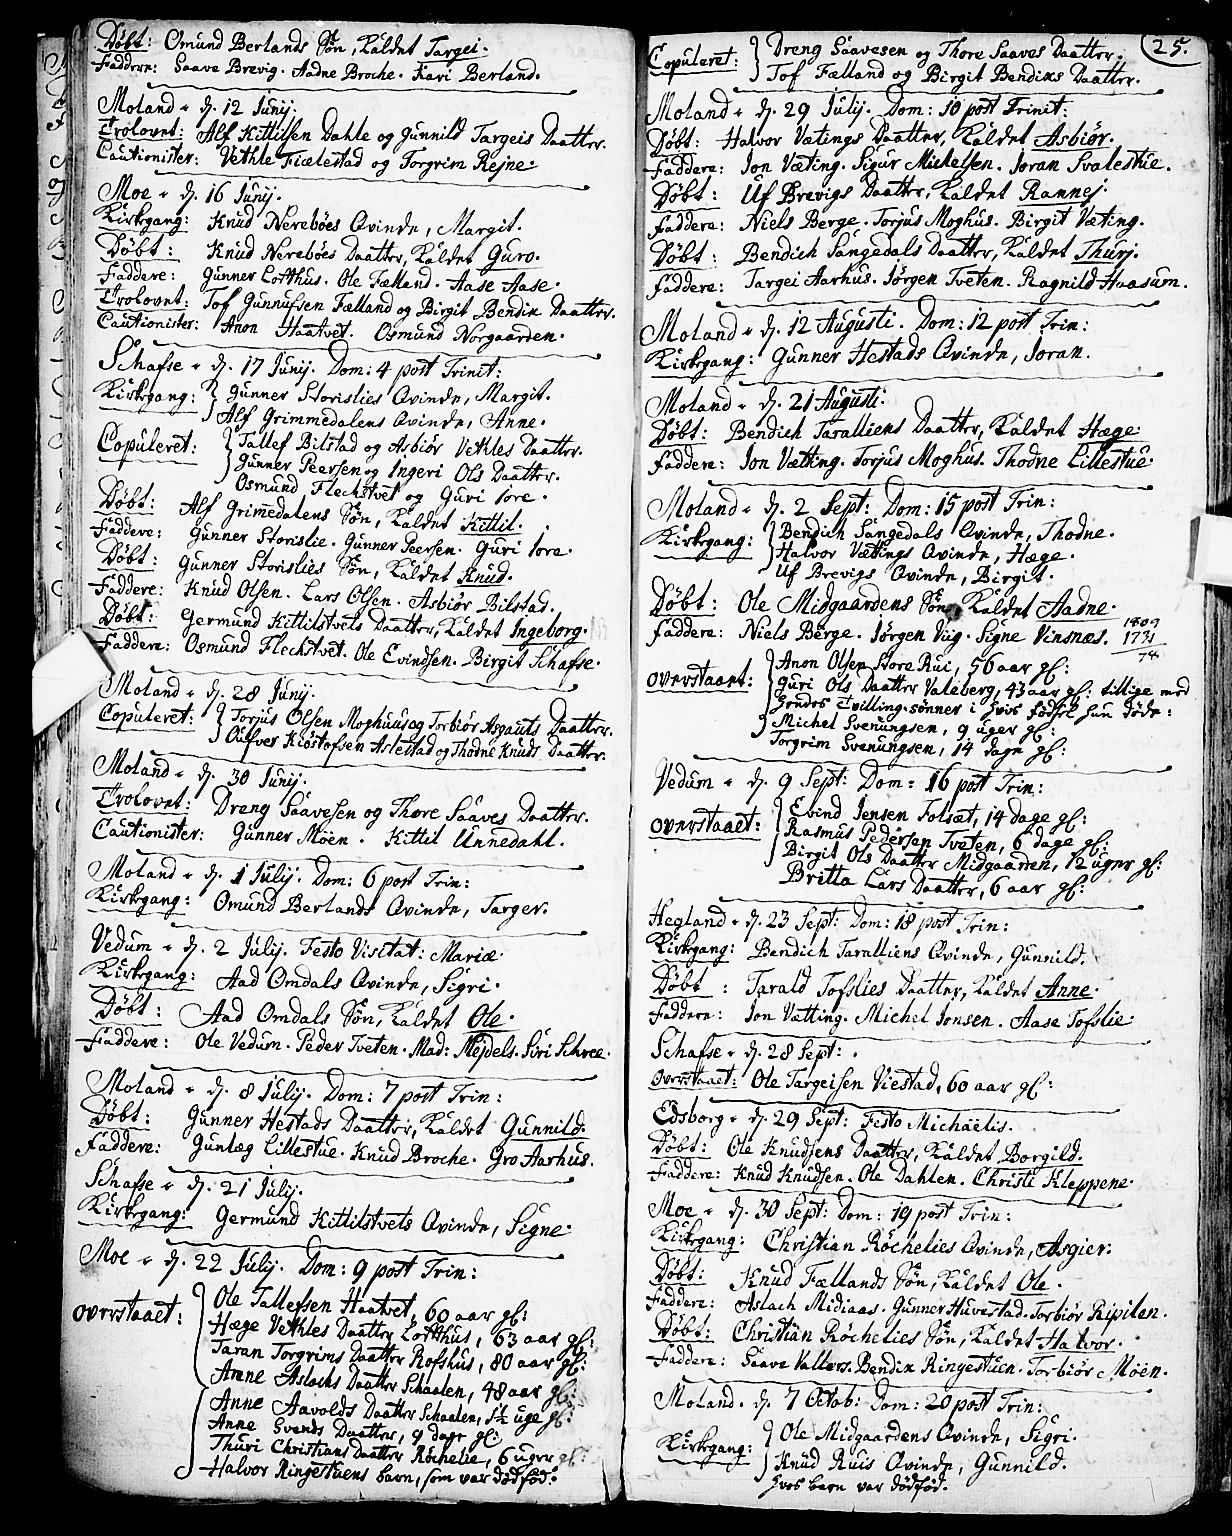 Døbt: Omund Berlands Søn, kaldet Targei.
Faddere: Saave Brevig. Aadne Broche. Kari Berland.
Moland d. 12 Junij.
Trolovet: Alf Kittilsen Dahle og Gunnild Targeis Daatter.
Cautionister: Vethle Fiælestad og Torgrim Rejne.
Moe d. 16 Junij.
Kirkegang: Knud Nerebøes Qvinde, Margit.
Døbt: Knud Nerebøes Daatter, kaldet Guro.
Faddere: Gunner Lofthus. Ole Fælland. Aase Aase.
Trolovet: Tof Gunnufsen Fælland og Birgit Bendix Daatter.
Cautionister: Anon Haatvet. Osmund Norgaarden.
Schafse d. 17 Junij. Dom: 4 post Trinit:
Kirkegang: Gunner Storislies Qvinde, Margit.
Alf Grimmedalens Qvinde, Anne.
Copuleret: Tallef Bilstad og Asbiør Vethles Daatter.
Gunner Peersen og Ingeri Ols Daatter.
Osmund Flechstvet og Guri Iore.
Døbt: Alf Grimedalens Søn, kaldet Kittil.
Faddere: Gunner Storislie. Gunner Peersen. Guri Iore.
Døbt: Gunner Storislies Søn, kaldet Knud.
Faddere: Knud Olsen. Lars Olsen. Asbiør Bilstad.
Døbt: Germund Kittilstvets Daatter, kaldet Ingeborg.
Faddere: Osmund Flechstvet. Ole Evindsen. Birgit Schafse.
Moland d. 28 Junij.
Copuleret: Torjus Olsen Moghus og Torbiør Asgauts Daatter.
Oufver Kiøstofsen Aslestad og Thodne Knuds Daatter.
Moland d. 30 Junij.
Trolovet: Dreng Saavesen og Thore Saaves Daatter.
Cautionister: Gunner Möen. Kittil Unnedahl.
Moland d. 1 Julij. Dom: 6 post Trin:
Kirkegang: Omund Berlands Qvinde, Targer.
Vedum d. 2 Julij. Festo Visitat: Mariæ.
Kirkegang: Aad Omdals Qvinde, Sigri.
Døbt: Aad Omdals Søn, kaldet Ole.
Faddere: Ole Vedum. Peder Tveten. Mad: Mejdels. Siri Schree.
Moland d. 8 Julij. Dom: 7 post Trin:
Døbt: Gunner Hestads Daatter, kaldet Gunnild.
Faddere: Gunlæg Lillestue. Knud Broche. Gro Aarhus.
Schafse d. 21 Julij.
Kirkegang: Germund Kittilstvets Qvinde, Signe.
Moe d. 22 Julij. Dom: 9 post Trin:
overstaaet: Ole Tallefsen Haatvet, 60 aar gl:
Hæge Vethles Daatter Lofthus, 63 aar gl:
Taran Torgrims Daatter Rofshus, 80 aar gl:
Anne Aslachs Daatter Schaalen, 48 aar gl:
Anne Aavolds Daatter Schaalen, 1½ uge gl:
Anne Svends Daatter, 9 dage gl:
Thuri Christians Daatter Röchelie, 6 uger gl:
Halvor Ringestuens barn, som var dödfød.
25.
Copuleret: Dreng Saavesen og Thore Saaves Daatter.
Tof Fælland og Birgit Bendiks Daatter.
Moland d. 29 Julij. Dom: 10 post Trinit:
Døbt: Halvor Vætings Daatter, kaldet Asbiør.
Faddere: Jon Væting. Sigur Michelsen. Joran Svalestue.
Døbt: Uf Brevigs Daatter, kaldet Ramnej.
Faddere: Niels Berge. Torjus Moghus. Birgit Væting.
Døbt: Bendich Sangedals Daatter, kaldet Thurj.
Faddere: Targei Aarhus. Jørgen Tveten. Ragnild Haasum.
Moland d. 12 Augusti. Dom: 12 post Trin:
Kirkegang: Gunner Hestads Qvinde, Joran.
Moland d. 21 Augusti:
Døbt: Bendich Taralliens Daatter, kaldet Hæge.
Faddere: Jon Vætting. Torjus Moghus. Thodne Lillestue.
Moland d. 2 Sept: Dom: 15 post Trin:
Kirkegang: Bendich Sangedals Qvinde, Thodne.
Halvor Vættings Qvinde, Hæge.
Uf Brevigs Qvinde, Birgit.
Døbt: Ole Midgaardens Søn, kaldet Aadne.
Faddere: Niels Berge. Jørgen Viig. Signe Vinsnæs.
1809
1731
74
overstaaet: Anon Olsen Store Rui, 56 aar gl:
Guri Ols Daatter Valeberg, 43 aar gl: tillige med
hendes tvilling-sønner i hvis fødsel hun døde:
Michel Svenungsen, 9 uger gl:
Torgrim Svenungsen, 14 dage gl:
Vedum d. 9 Sept: Dom: 16 post Trin:
overstaaet: Evind Jensen Folsæt, 14 dage gl:
Rasmus Pedersen Tveten, 6 dage gl:
Birgit Ols Daatter Midgaarden, 12 uger gl:
Britta Lars Daatter, 6 aar gl:
Hegland d. 23 Sept: Dom: 18 post Trin:
Kirkegang: Bendich Taralliens Qvinde, Gunnild.
Døbt: Tarald Tofslies Daatter, kaldet Anne.
Faddere: Jon Vætting. Michel Jonsen. Aase Tofslie.
Schafse d. 28 Sept:
overstaaet: Ole Targeisen Viestad, 60 aar gl:
Edsborg d. 29 Sept: Festo Michaelis.
Døbt: Ole Knudsens Daatter, kaldet Borgild.
Faddere: Knud Knudsen. Ole Dahlen. Christi Kleppene.
Moe d. 30 Sept: Dom: 19 post Trin:
Kirkegang: Christian Röchelies Qvinde, Asgier.
Døbt: Knud Fællands Søn, kaldet Ole.
Faddere: Aslach Midiaas. Gunner Huvestad. Torbiør Ripilen.
Døbt: Christian Röchelies Søn, kaldet Halvor.
Faddere: Saave Vallers. Bendix Ringestuen. Torbiør Möen.
Moland. d. 7 Octob: Dom: 20 post Trin:
Kirkegang: Ole Midgaardens Qvinde, Sigri.
Knud Ruis Qvinde, Gunnild.
hvis barn var dödfød.